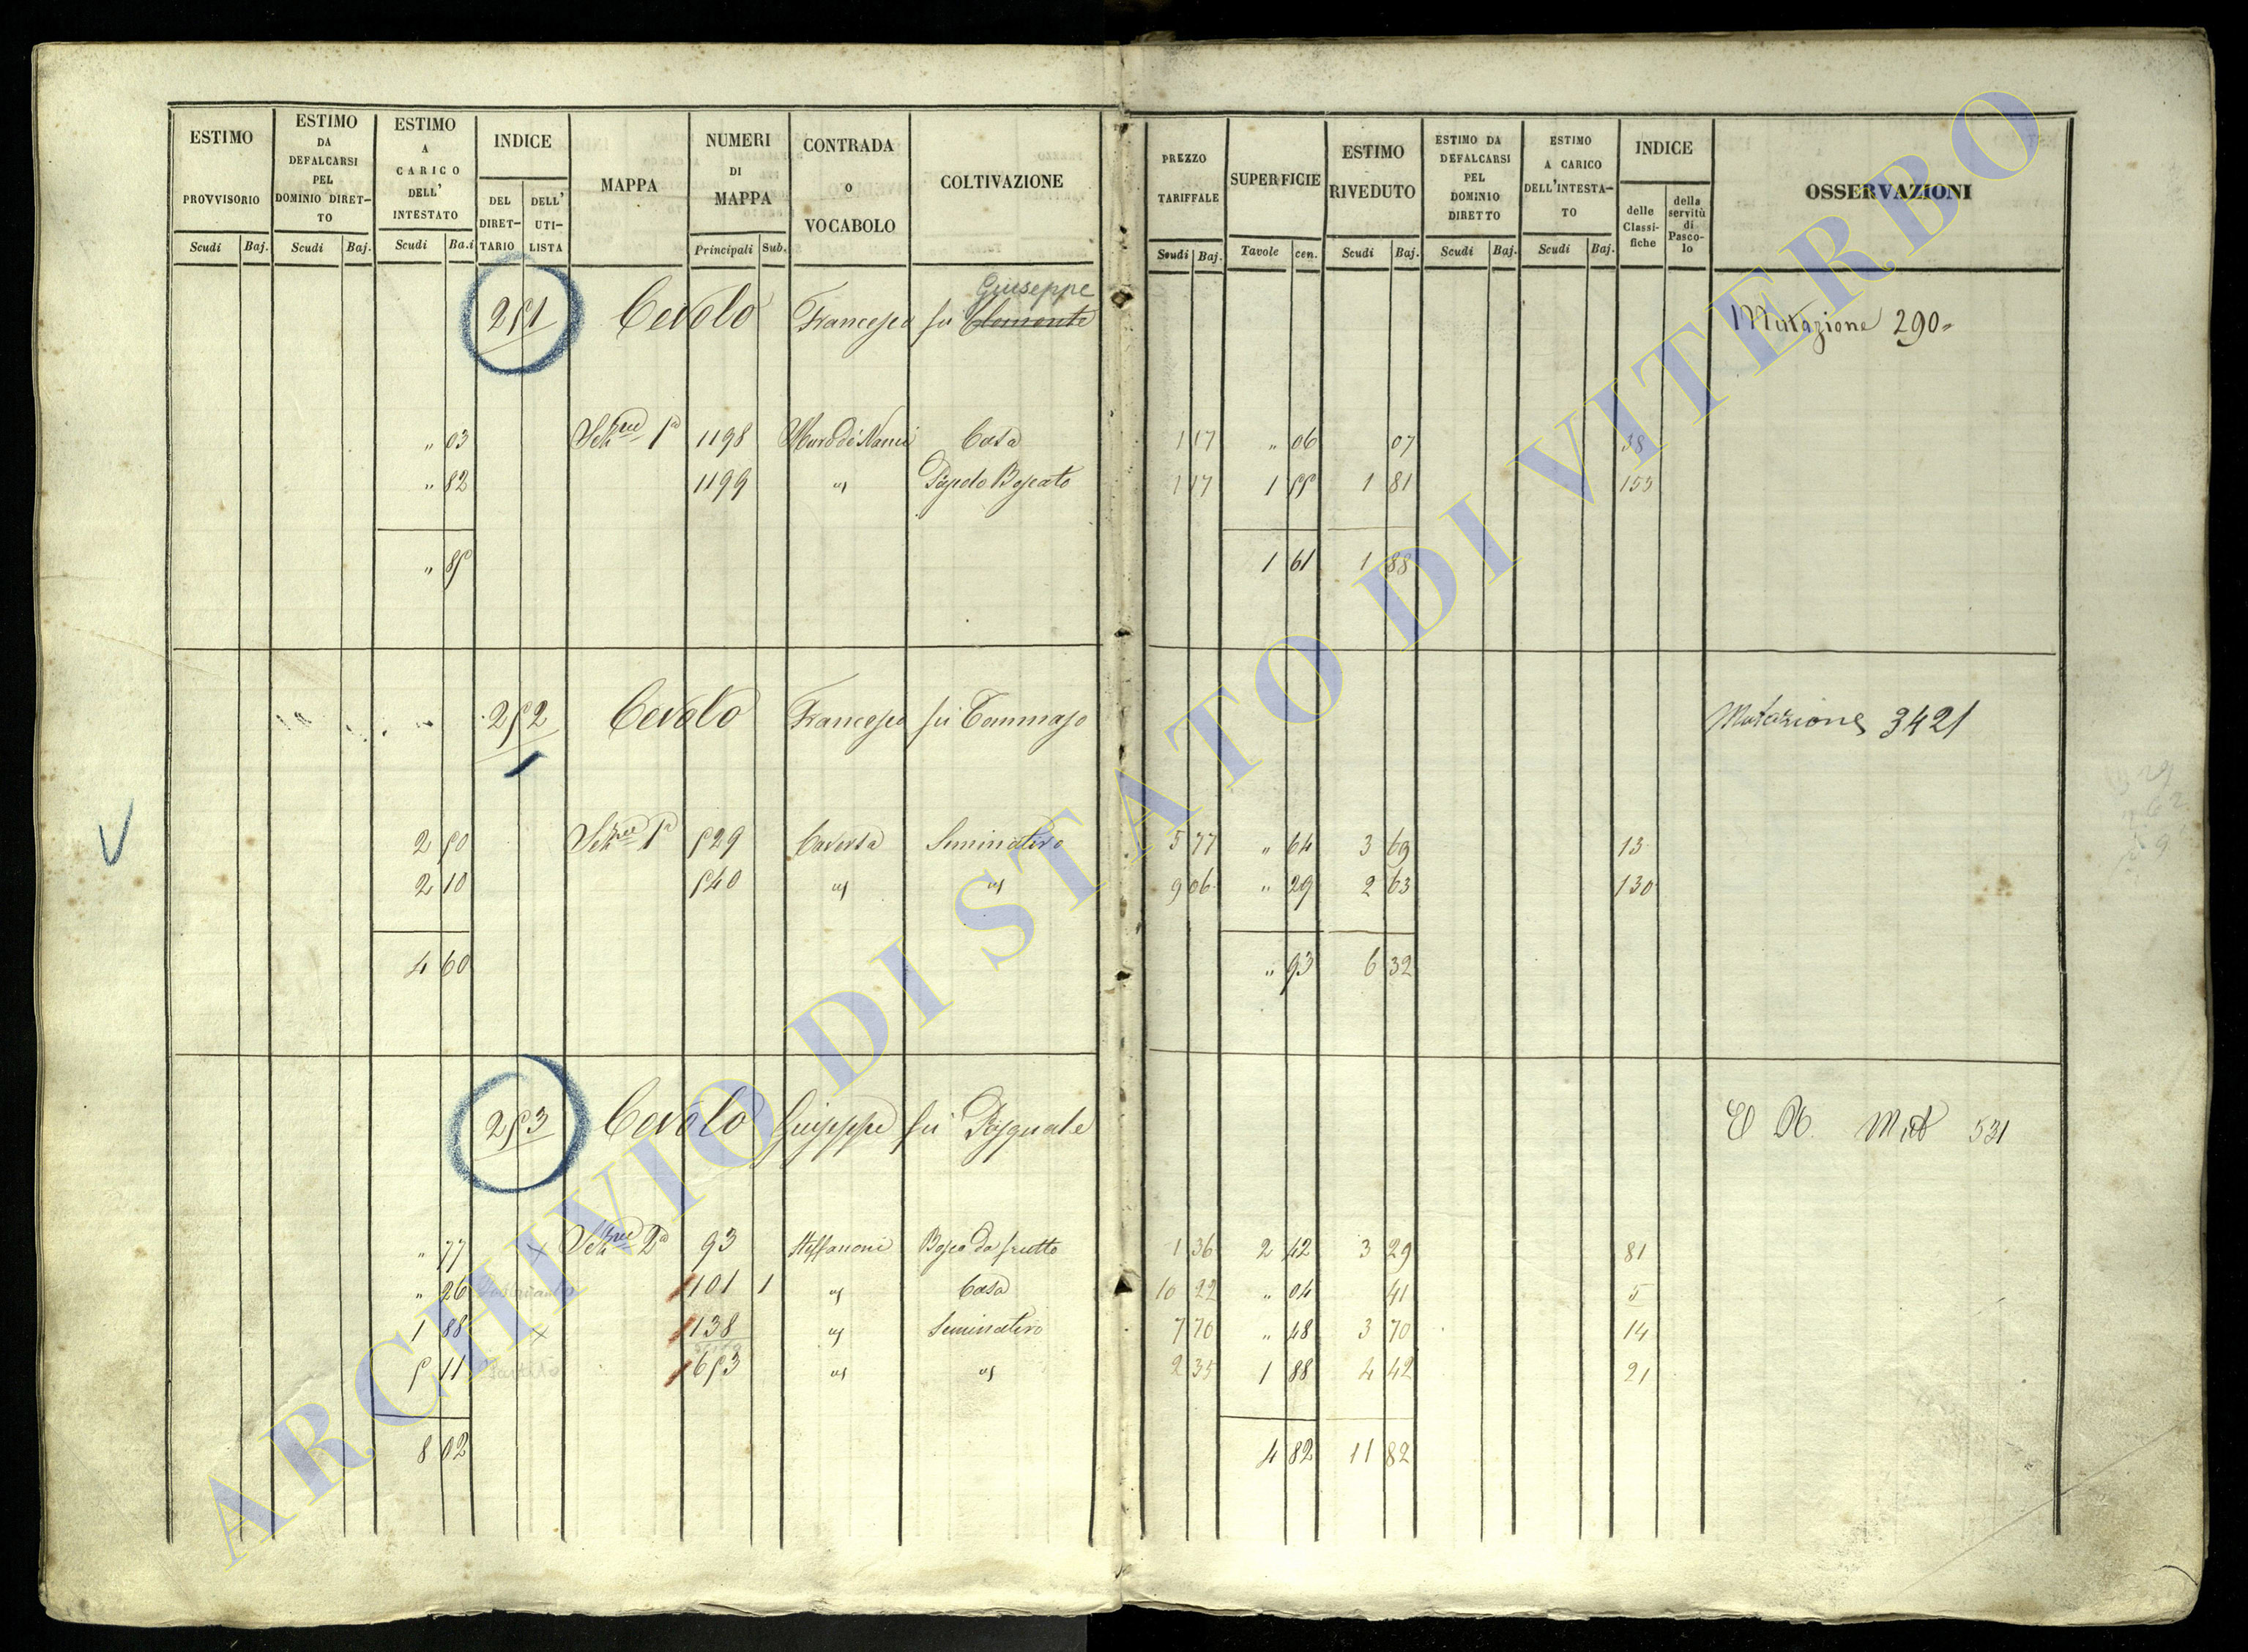 ESTIMO PROVVISORIO Scudi Baj.
ESTIMO DA DEFALCARSI PEL DOMINIO DIRET-TO Scudi Baj.
ESTIMO A CARICO DELL' INTESTATO Scudi Ba.i
INDICE DEL DIRET-TARIO DELL' UTI-LISTA
MAPPA
NUMERI DI MAPPA Principali Sub.
CONTRADA o VOCABOLO
COLTIVAZIONE
PREZZO TARIFFALE Scudi Baj.
SUPERFICIE Tavole cen.
ESTIMO RIVEDUTO Scudi Baj.
ESTIMO DA DEFALCARSI PEL DOMINIO DIRETTO Scudi Baj.
ESTIMO A CARICO DELL'INTESTA-TO Scudi Baj.
INDICE delle Classi-fiche della servitù di Pasco-lo
OSSERVAZIONI
Giuseppe
251 Cevolo Francesco fu Clemente Mutazione 290
" 03 1198 Casa 1 17 " 06 07 38
" 82 1199 " Pascolo Boscato 1 17 1 55 1 81 153
" 85 1 61 1 88
252 Cevolo Francesco fu Tommaso Mutazione 3421
2 50 529 Caversa Seminativo 5 77 " 64 3 69 13
2 10 540 " " 9 06 " 29 2 63 130
4 60 " 93 6 32
253 Cevolo Giuseppe fu Pasquale 531
" 77 × 2a 93 Steffanoni Bosco da frutto 1 36 2 42 3 29 81
" 26 101 1 " Casa 10 22 " 04 41 5
1 88 × 138 " Seminativo 7 70 " 48 3 70 14
5 11 Partita 653 " " 2 35 1 88 4 42 21
8 02 4 82 11 82
ARCHIVIO DI STATO DI VITERBO